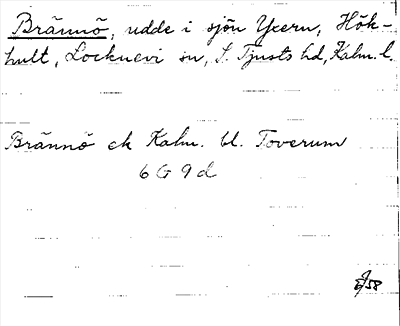 Brännö, udde i sjön Yxern, Hök-
hult, Locknevi sn, S. Tjusts hd, Kalm. l.
Brännö ek Kalm. bl. Toverum
6 G 9 d
58